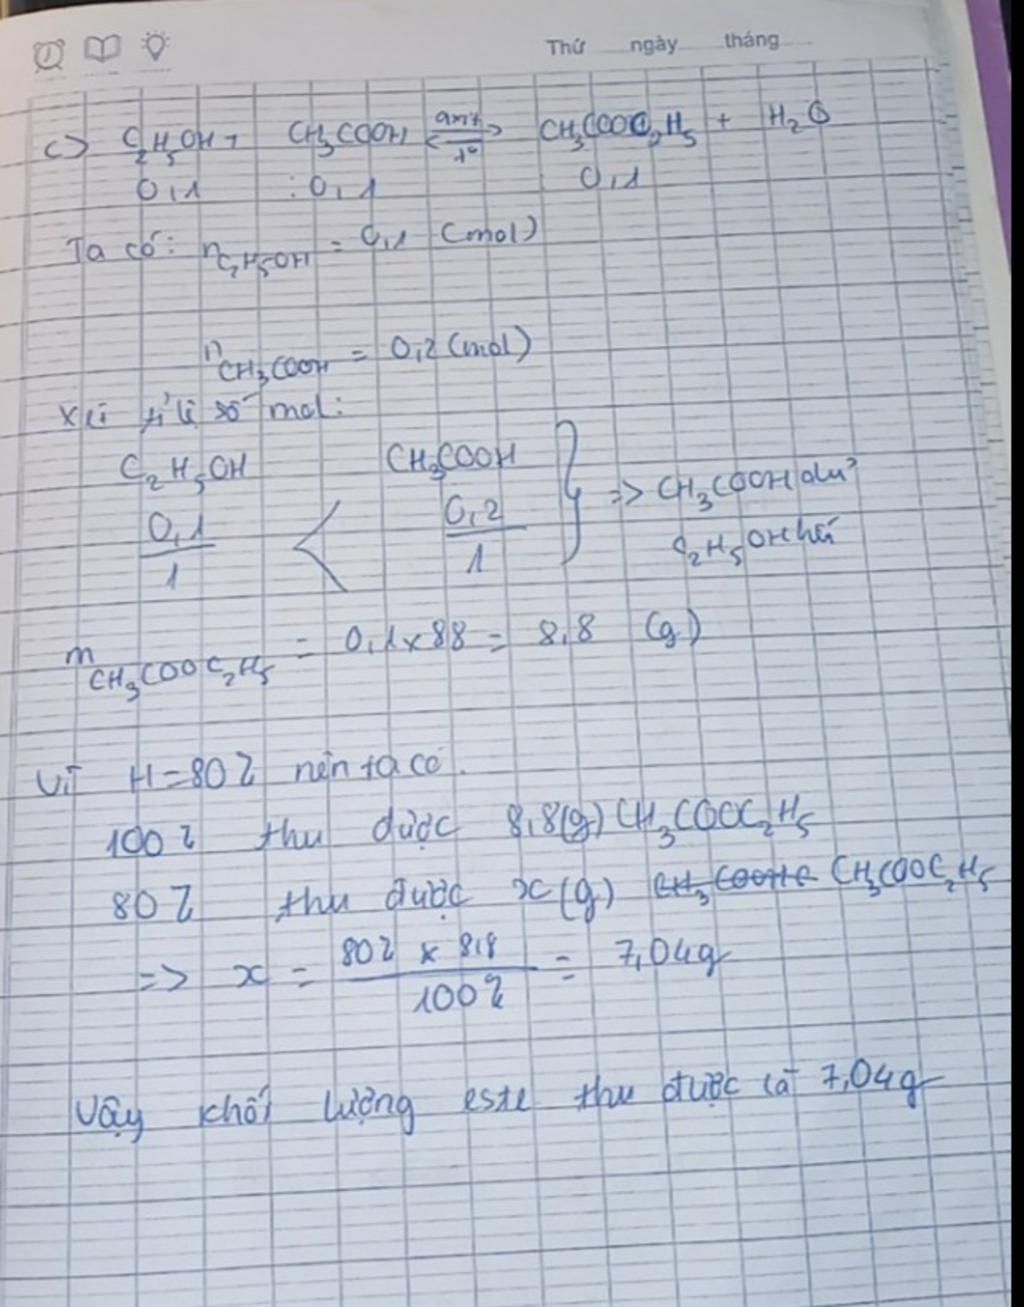 Thứ ngày tháng
c) C₂H₅OH + CH₃COOH ⇌ axit t° CH₃COOC₂H₅ + H₂O
0,1 : 0,1 0,1
Ta có: nC₂H₅OH = 0,1 (mol)
nCH₃COOH = 0,2 (mol)
Xét tỉ lệ số mol:
C₂H₅OH CH₃COOH
0,1/1 < 0,2/1 } => CH₃COOH dư
C₂H₅OH hết
mCH₃COOC₂H₅ = 0,1 x 88 = 8,8 (g)
Vì H = 80% nên ta có.
100% thu được 8,8(g) CH₃COOC₂H₅
80% thu được x(g) CH₃COOC₂H₅
=> x = 80% x 8,8 / 100% = 7,04g
Vậy khối lượng este thu được là 7,04g